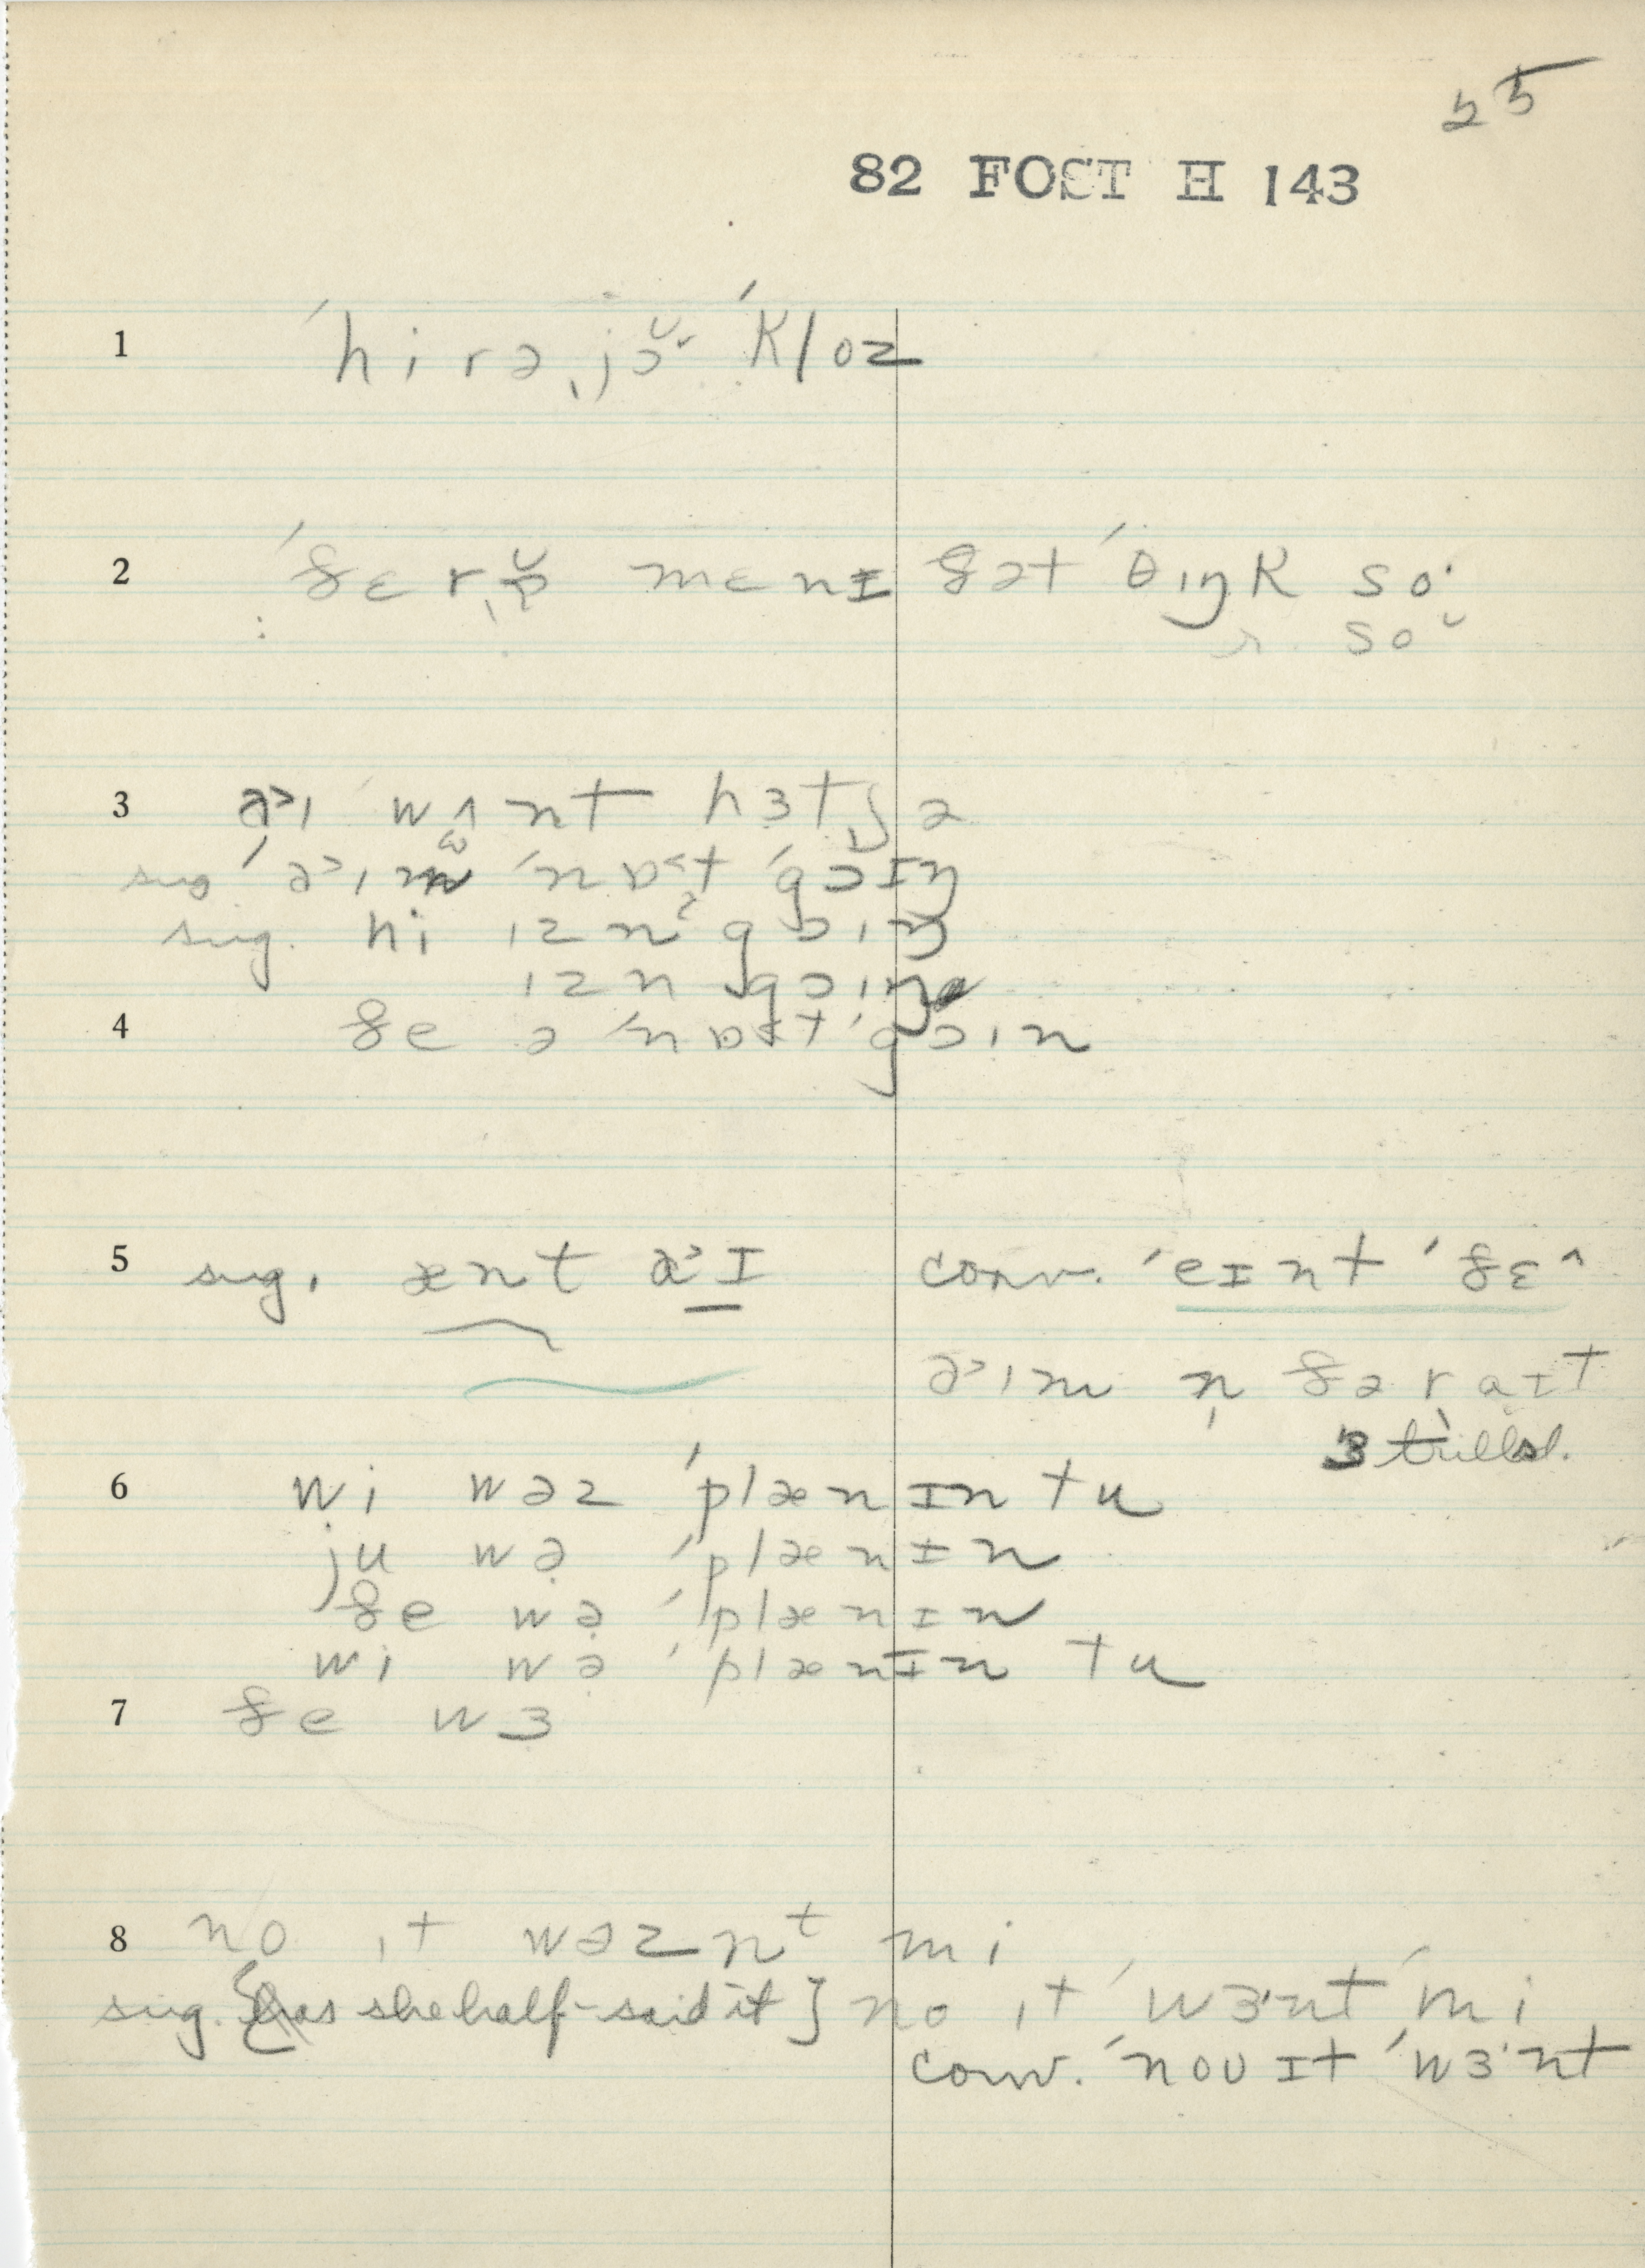 25
82 FOST H 143
1 ˈhirə ˌjɔ˘r ˈkloz
2 ˈðɛr mɛnɪ ðət ˈθɪŋk so·
so ˘
3 a˃ɪ wʌnt hɜtʃə
sug ˈa˃ɪm ˈnɒ˂t ˈgɔɪŋ
sug. hi ɪznˀ gɔɪŋ
ɪzn gɔɪŋ
4 ðe ə ˈnɒ˂t ˈgɔɪn
5 sug. ænt a˃ɪ conv. ˈeɪnt ˈðɛ^
a˃ɪm n̩ ðə raɪt
3 trilled.
6 wi wəz ˈplænɪn tu
ju wə ˈplænɪn
ðe wə ˈplænɪn
wi wə ˈplænɪn tu
7 ðe wɜ
8 no ɪt wəznᵗ mi
sug. [as she half-said it] no ɪt ˈwɜ·nt ˈmi
conv. ˈnoʊ ɪt ˈwɜ·nt